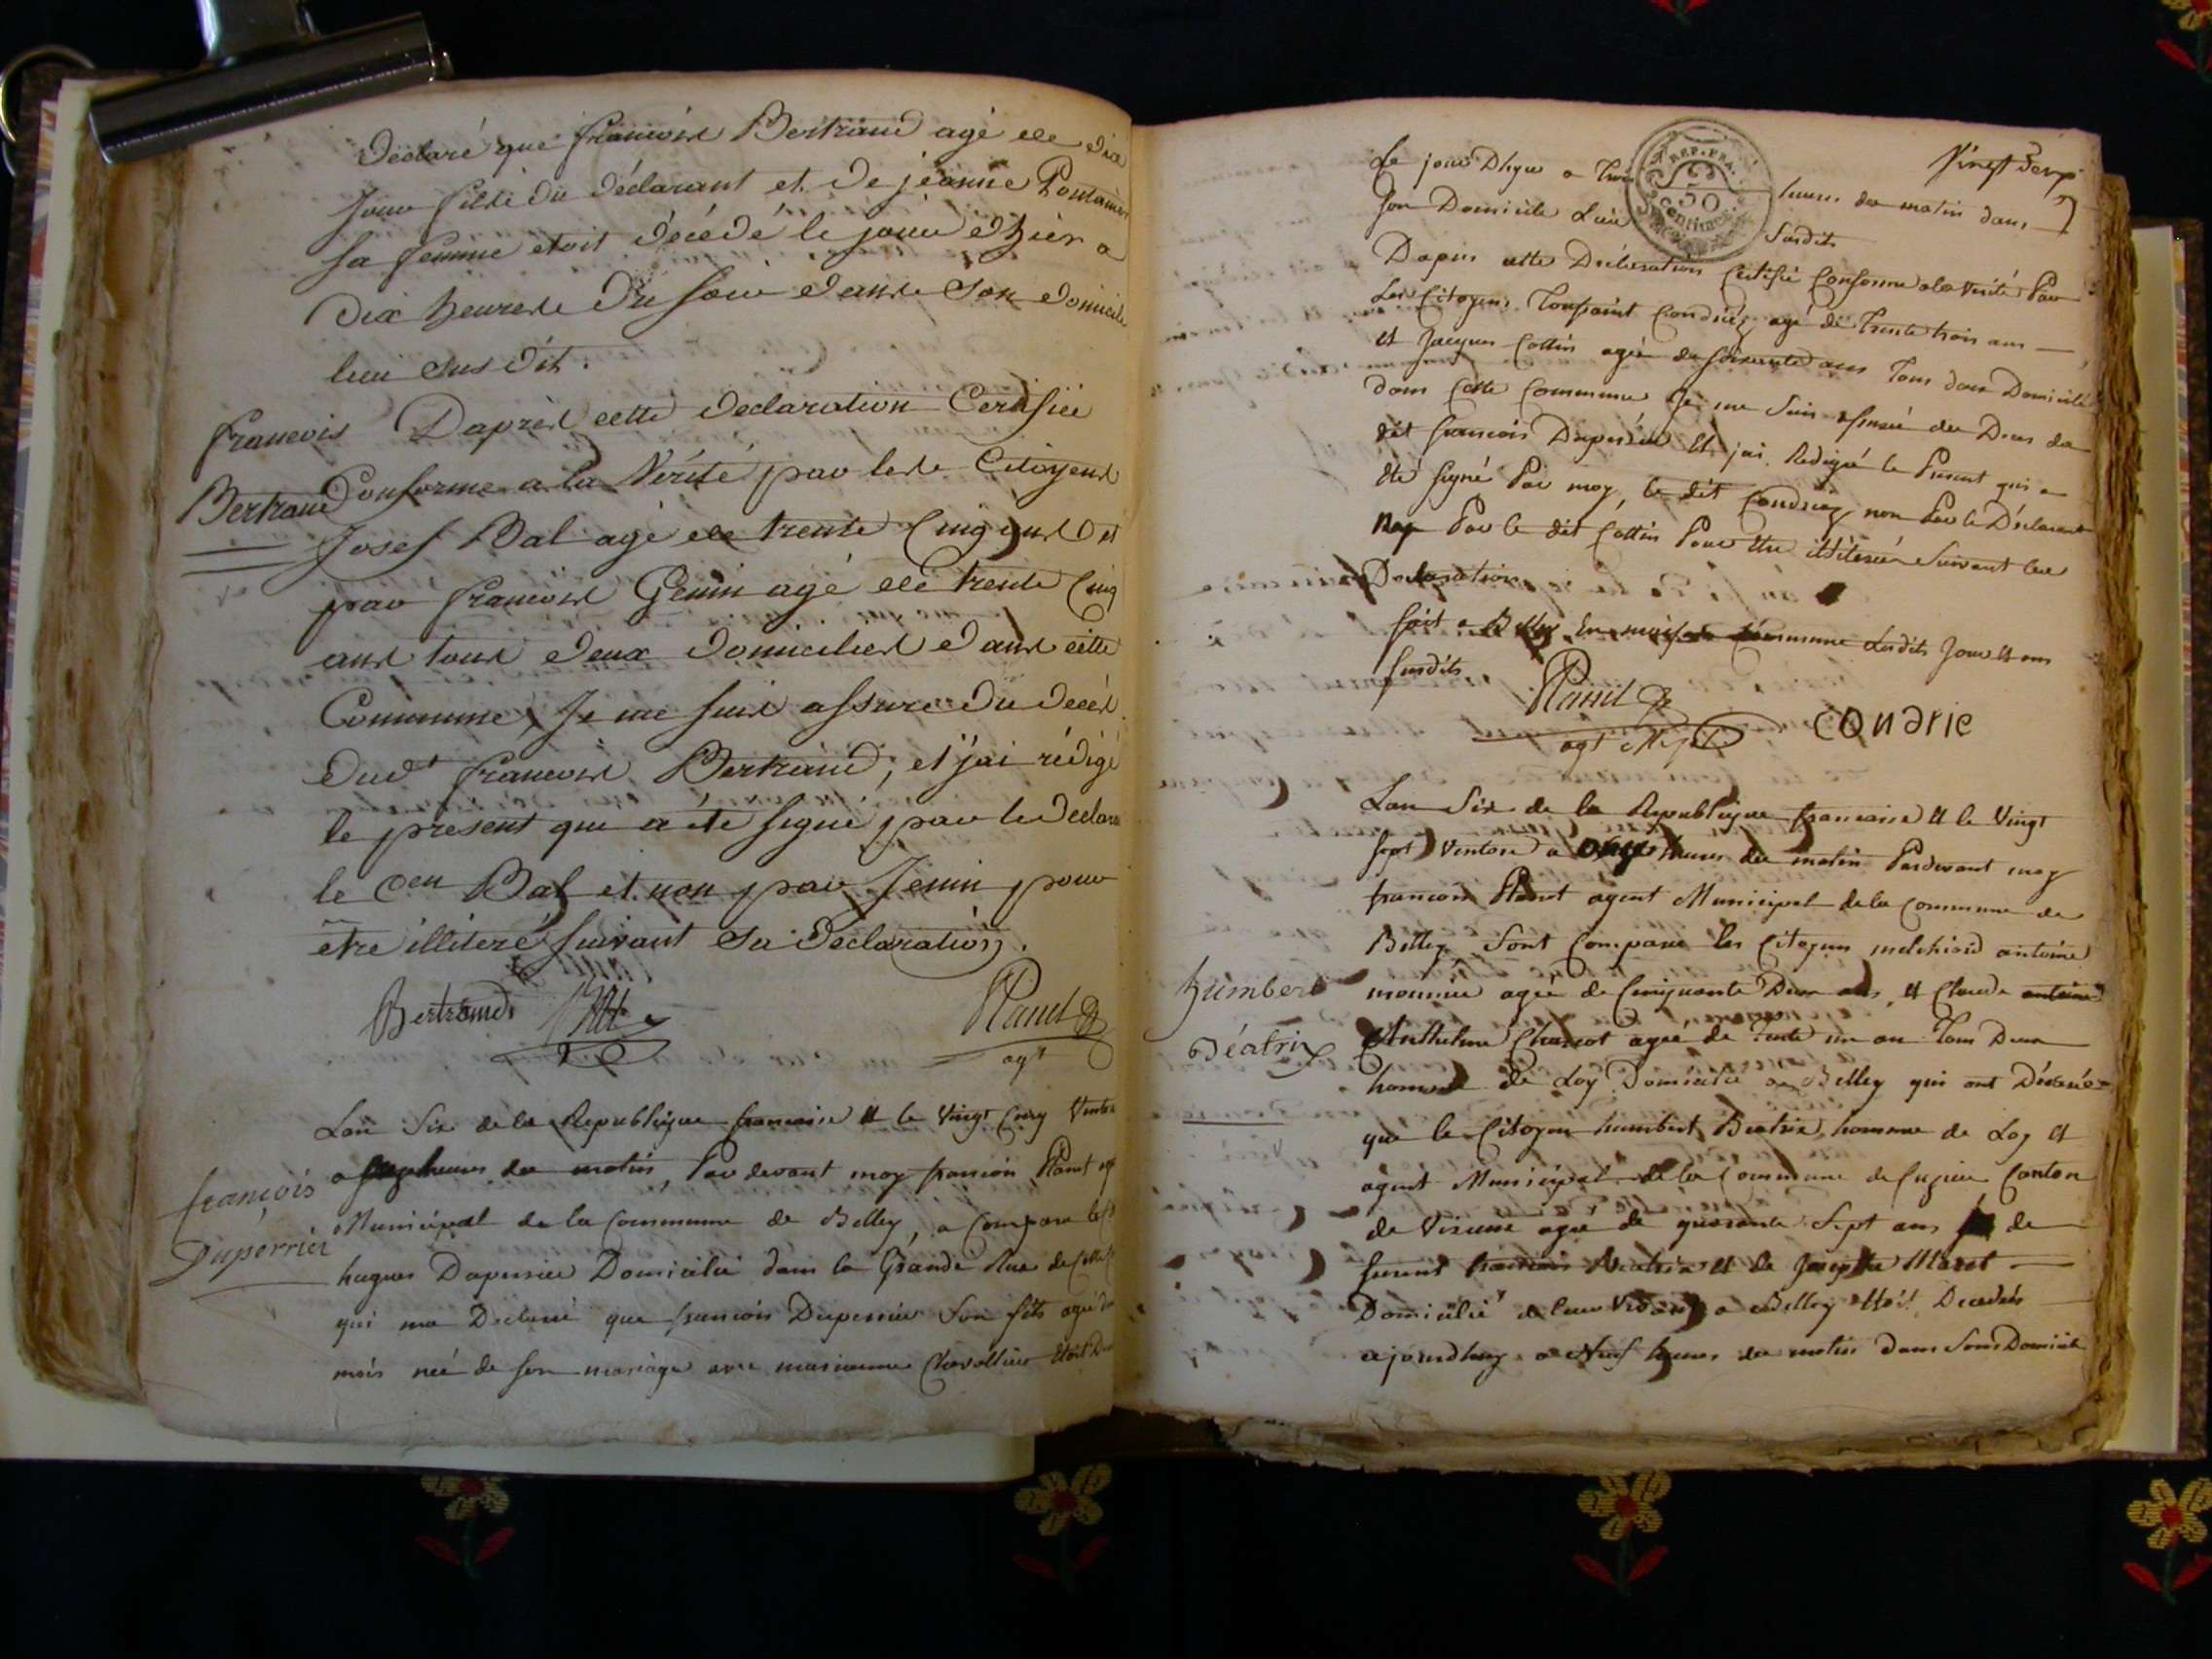 Déclaré que francois Bertrand agé de dix
Jour fils du déclarant et de jeanne
sa femme etoit décédé le jour d hier a
dix heures du soir dans son domicile
lieu sus dit.
francois
Bertrand
Daprès cette declaration Certifiée
Conforme a la Vérité par les Citoyens
Josef Bal agé de trente Cinq ans et
par francois Genin agé de trente Cinq
ans tous deux domiciliés dans cette
Commune, Je me suis assuré du decès
dudt francois Bertrand; et j'ai rédigé
le présent qui a été signé par le Declara
le Cen Bal et non par Jenin pour
etre illiteré suivant sa declaration.
Bertrand
agt
françois
Duperrier
Lan Six de la Republique francaise et le Vingt Cinq Ventose
a heures du matin, Par devant moy francois
Municipal de la Commune de Belley, a Comparu le
hugues Duperier Domicilié dans la Grande Rue de
qui ma Declaré que francois Duperrier son fils agé
mois neé de son mariage avec marianne etoit
Vingt Sept
Le jour Dhyer a Trois heures du matin dans
REP. FRA.
50
centimes
Son Domicile Lieu Susdits
Dapres cette Declaration Certifié Conforme a la Verité Par
Les Citoyens Toussaint Condriez agé de Trente trois ans
et Jacques Cottin agé de soixante ans Tous deux Domicilié
dans Cette Commune Je me Suis assuré du Deces du
dit francois Duperier Et jai Redigé le Present qui a
été Signé Par moy, le dit Condriez non Par le Déclarant
Par le dit Cottin Pour etre illiteré Suivant leur
Declaration
fait a Belley En maison Commune Lesdits Jour et an
susdits
agt
CONdrie
Lan Six de la Republique francaise et le Vingt
Sept Ventose a onze heures du matin Pardevant moy
francois agent Municipal de la Commune de
Belley Sont Comparu les Citoyens melchiord antoine
humbert
Béatrix
monnier agée de Cinquante Deux ans, et Claude antoine
Anthelme agée de Trente un an Tous Deux
homme de Loy Domicilié a Belley qui ont Déclaré
que le Citoyen humbert Beatrix homme de Loy et
agent Municipal de la Commune de Cuzieu Canton
de Virieux agée de quarante Sept ans de
furent francois Beatrix et de Josepte
Domicilié a Belley etoit Decedés
ajourdhuy a Neuf heures du matin dans Son Domicile